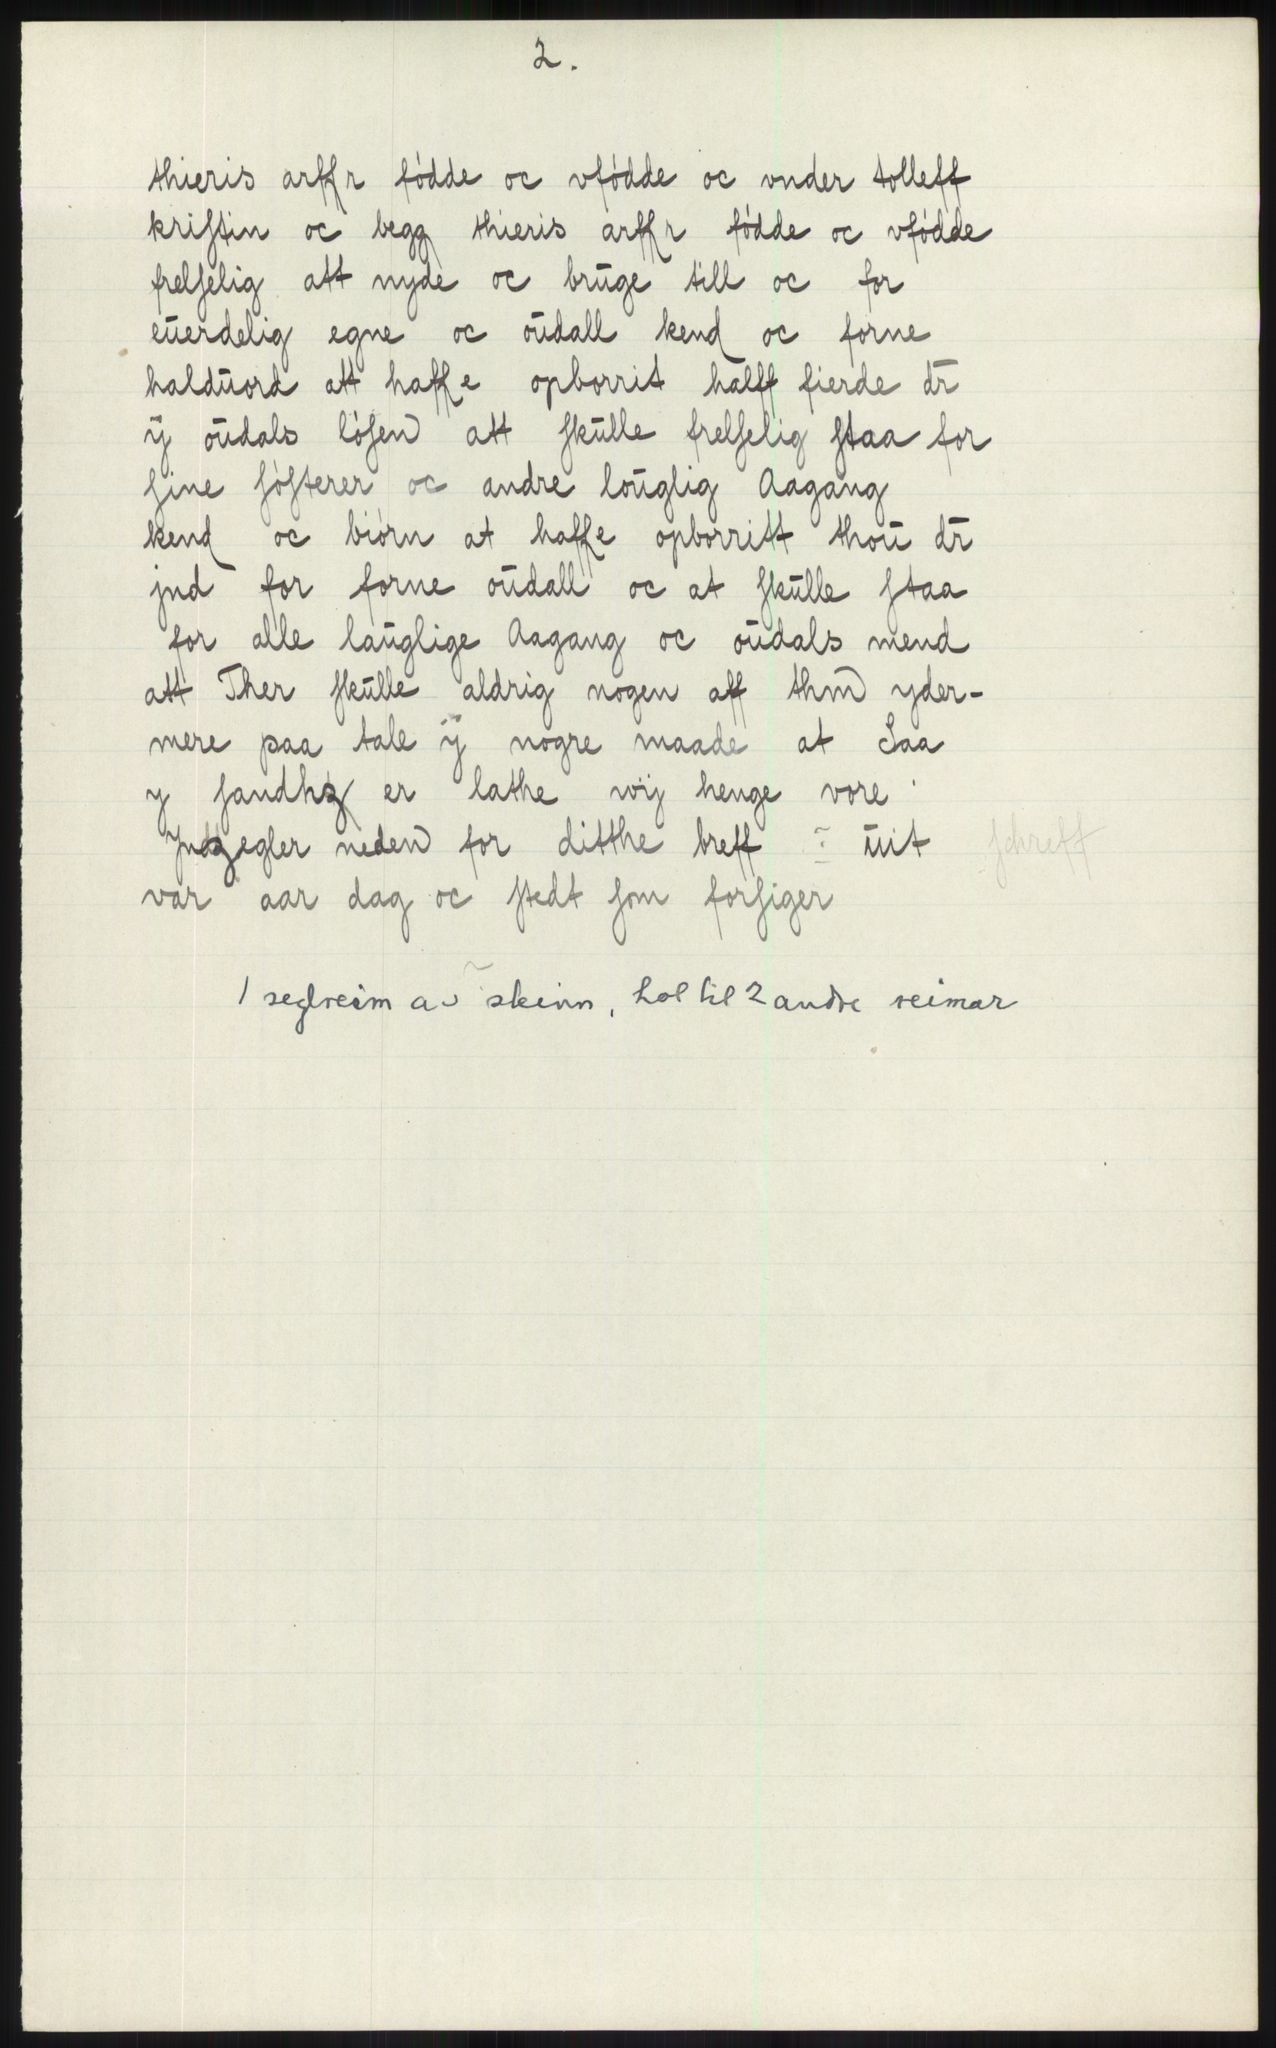 2.
thieris arffr fódde oc vfódde oc vnder tolleff
kristin oc begg thieris arffr fódde oc vfódde
frelselig att nyde oc brūge till oc for
eūerdelig egne oc oūdall kend oc forne
haldūord att haffe opborrit halff fierde dr̄
ÿ oūdals lósen att skūlle frelselig staa for
sine sósterer oc andre loūglig Aagang
kend oc biórn at haffe opborritt thoū dr̄
jnd for forne oūdall oc at skūlle staa
for alle laūglige Aagang oc oūdals mend
att Ther skūlle aldrig nogen aff thm̄ yder-
mere paa tale ÿ nogre maade at Saa
y sandhz er lathe wij henge vore
Jndzegler neden for ditthe breff ūit schreff
var aar dag oc stedt som forsiger
1 seglreim av skinn, hol til 2 andre reimar